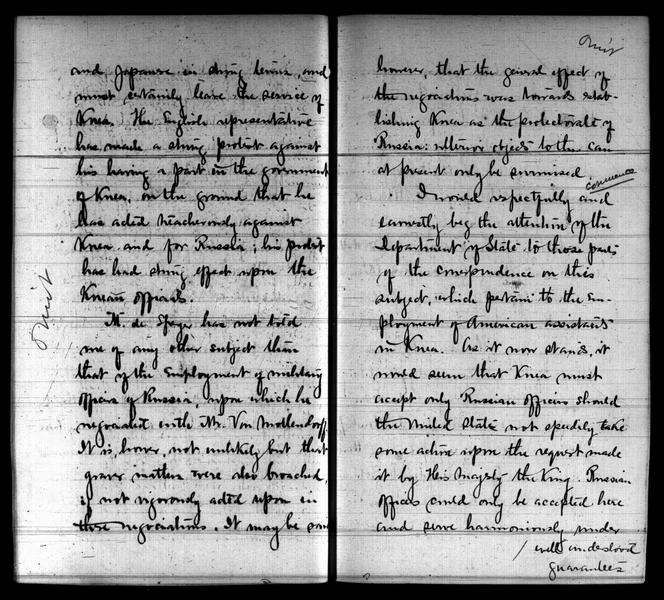 and Japanese in strong terms, and
must certainly leave the service of
Korea. The English representative
has made a strong protest against
his having a part in the government
of Korea, on the ground that he
has acted treacherously against
Korea and for Russia; his protest
has had strong effect upon the
Korean officials.
Omit
M. de Speyer has not told
me of any other subject than
that of the Employment of military
officers of Russia, upon which he
negociated with Mr. Von Mollendorff.
It is, however, not unlikely but that
graver matters were also broached,
if not vigorously acted upon in
these negociations. It may be said
Omit
however, that the general effect of
the negociations was towards estab-
lishing Korea as the protectorate of
Russia: ulterior objects to this can
at present only be surmised.
commence
I would respectfully and
earnestly beg the attention of the
Department of State to those parts
of the correspondence on this
subject, which pertain to the Em-
ployment of American assistants
in Korea. As it now stands, it
would seem that Korea must
accept only Russian officers should
the United States not speedily take
some action upon the request made
it by His Majesty the King. Russian
officers could only be accepted here
and serve harmoniously under
/ well understood
guarantees